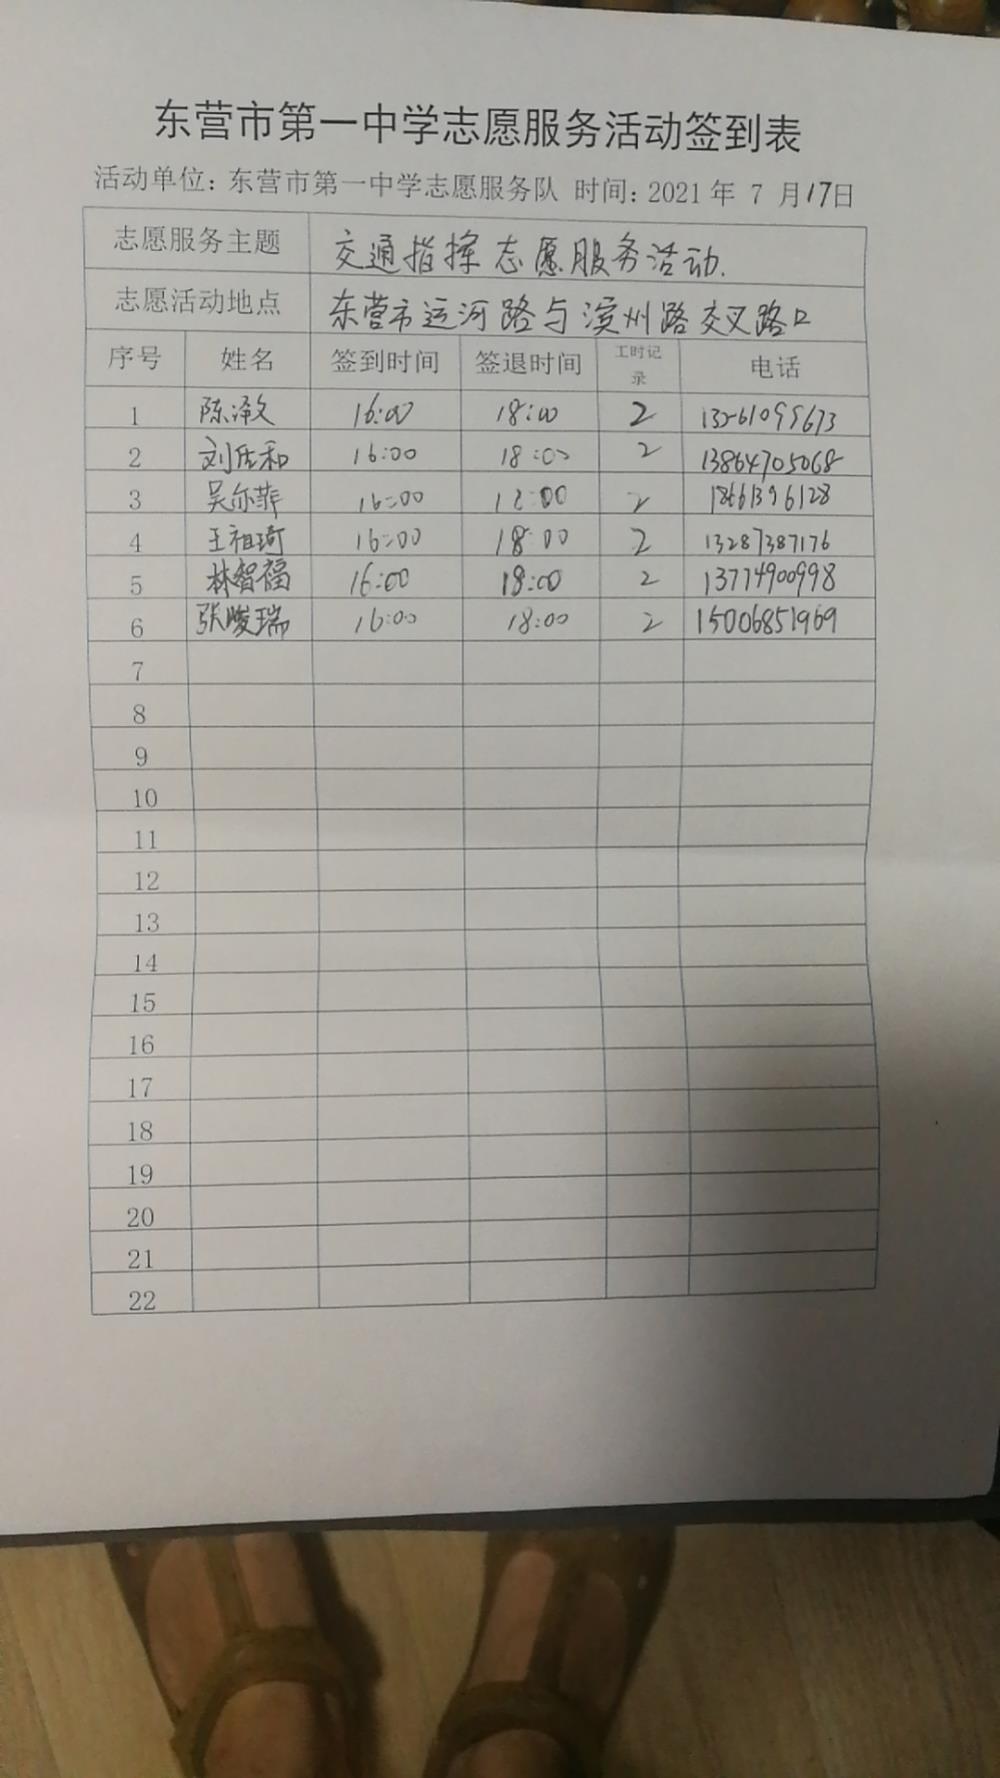 东营市第一中学志愿服务活动签到表
活动单位：东营市第一中学志愿服务队 时间：2021 年 7 月17日
志愿服务主题 交通指挥志愿服务活动.
志愿活动地点 东营市运河路与滨州路交叉路口
序号 姓名 签到时间 签退时间 工时记录 电话
1 陈泽文 16:00 18:00 2
2 16:00 18:00 2 13864705068
3 吴尔菲 16:00 18:00 2 18661396128
4 王祖琦 16:00 18:00 2 13287387176
5 林智福 16:00 18:00 2 13774900998
6 张峻瑞 16:00 18:00 2 15006851969
7
8
9
10
11
12
13
14
15
16
17
18
19
20
21
22